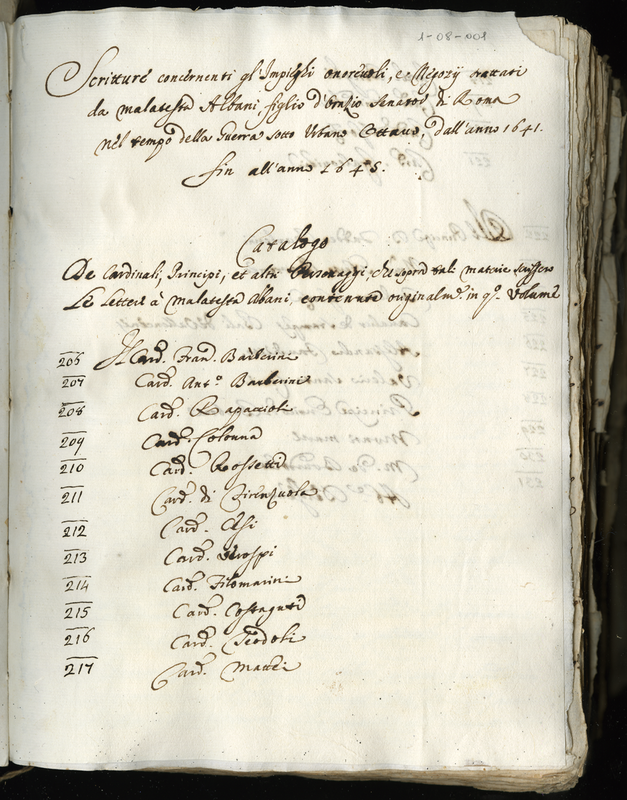 1-08-001
Scritture concernenti gl'Impieghi onorevoli, e Negozij trattati
da Malatesta Albani, figlio d'Orazio Senatore di Roma
nel tempo della Guerra sotto Urbano Ottavo, dall'anno 1641.
fin all'anno 1645.
Catalogo
De Cardinali, Principi, et altri Personaggi, che sopra tali materie scrissero
Le Lettere à Malatesta Albani, contenute originalmte. in qo. Volume
206 Il Card. Fran. Barberini
207 Card. Anto. Barberini
208 Card. Rapaccioli
209 Card. Colonna
210 Card. Rossetti
211 Card. di Firenzuola
212 Card. Cesi
213 Card. Verospi
214 Card. Filomarini
215 Card. Costaguti
216 Card. Teodoli
217 Card. Mattei